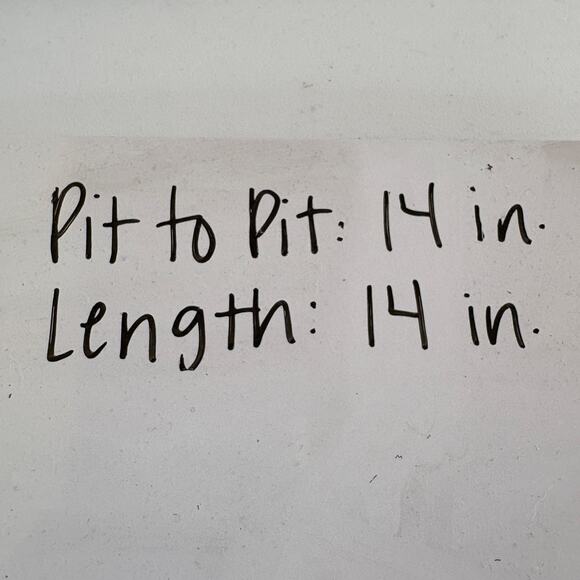 Pit to Pit: 14 in.
Length: 14 in.